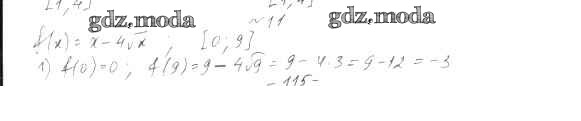 [1;4] [1;4]
gdz.moda ~11 gdz.moda
f(x) = x - 4√x ; [0; 9]
1) f(0)=0 ; f(9)=9 - 4√9 = 9 - 4·3 = 9 - 12 = -3
- 115 -